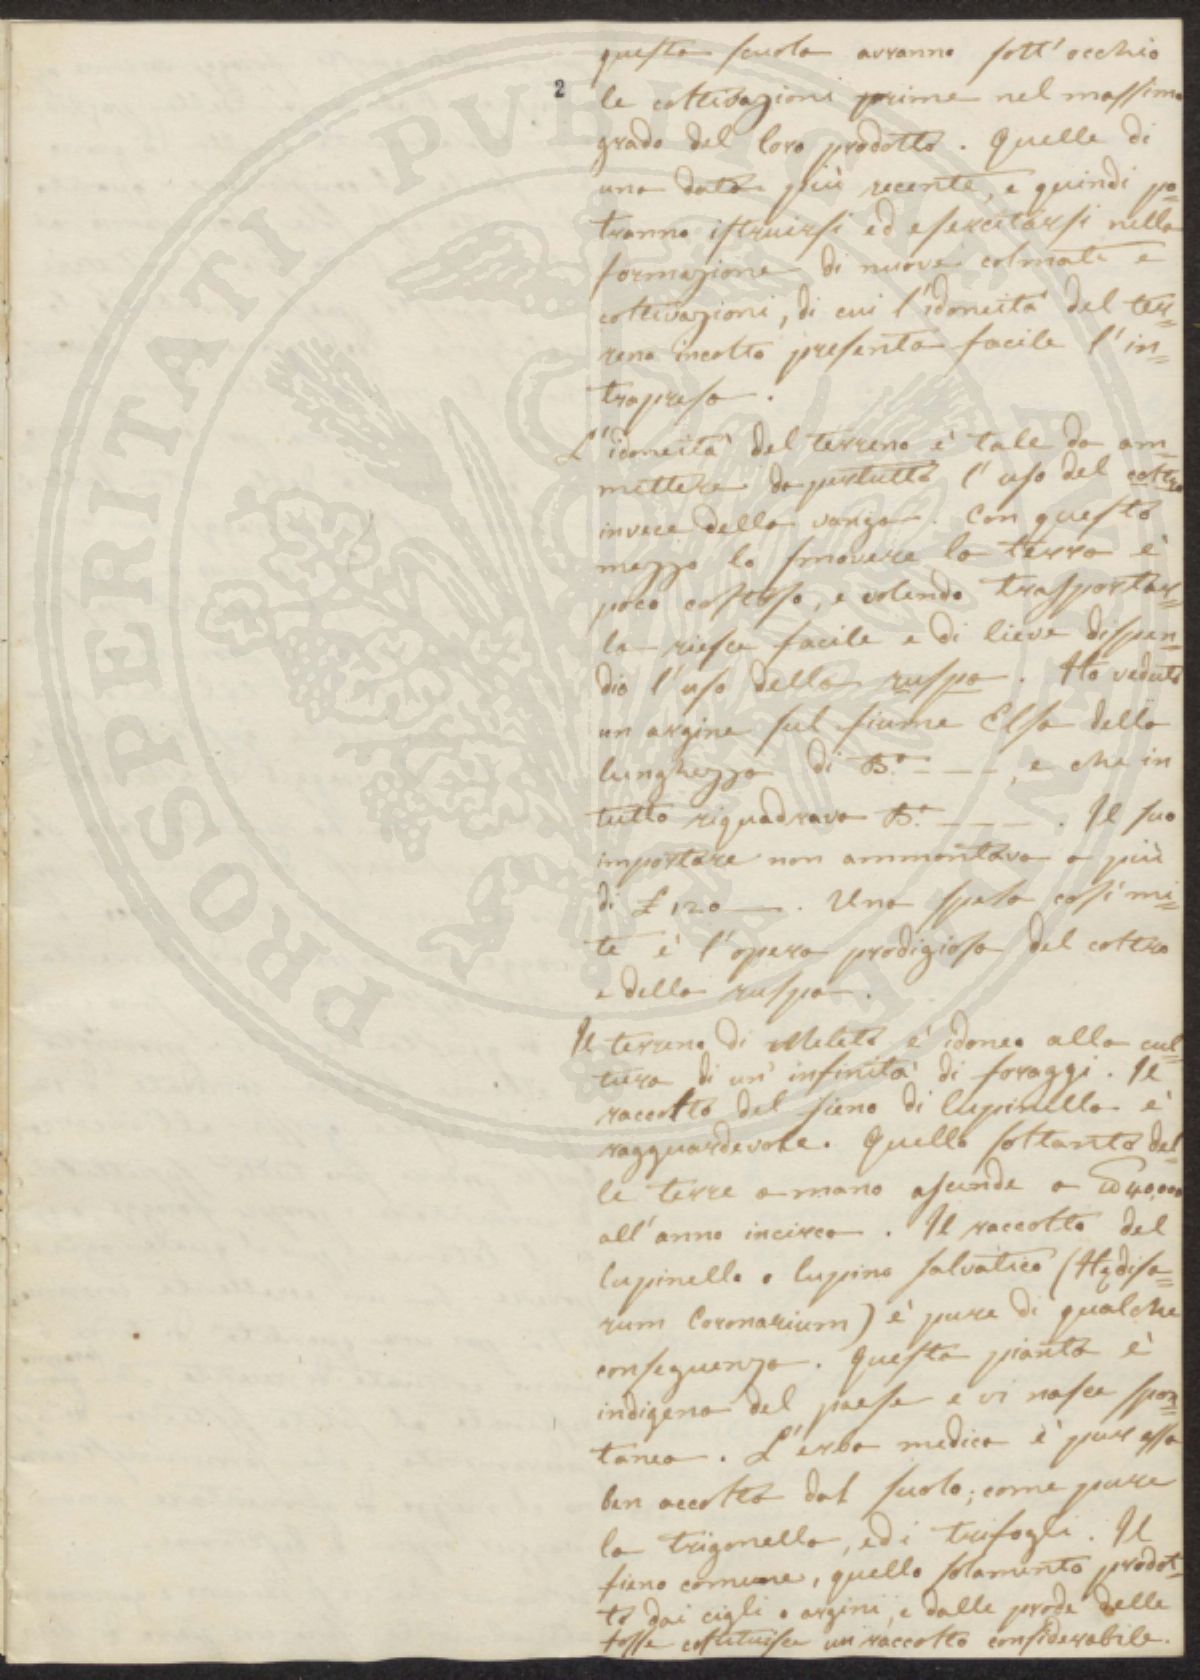 2
questa scuola avranno sott'occhio
le coltivazioni prime nel massimo
grado del loro prodotto. Quelle di
una data più recente, e quindi po=
tranno istruirsi ed esercitarsi nella
formazione di nuove colmate e
coltivazioni, di cui l'idoneità del ter=
reno incolto presenta facile l'in=
trapresa.
L'idoneità del terreno è tale da am=
mettere da pertutto l'uso del coltro
invece della vanga. Con questo
mezzo lo smovere la terra è
poco costoso, e volendo trasportar=
la riesce facile e di lieve dispen=
dio l'uso della ruspa. Ho veduto
un argine sul fiume Elsa della
lunghezza di B.a - — —, e che in
tutto riquadrava B.a — — —. Il suo
importare non ammontava a più
di £ 120 —. Una spesa così mi=
te è l'opera prodigiosa del coltro
e della ruspa.
Il terreno di Meleto è idoneo alla cul=
tura di un'infinità di foraggi. Il
raccolto del fieno di lupinella è
ragguardevole. Quello soltanto del=
le terre a mano ascende a 40,000
all'anno incirca. Il raccolto del
lupinello o lupino salvatico (Hedisa=
rum Coronarium) è pure di qualche
conseguenza. Questa pianta è
indigena del paese e vi nasce spon=
tanea. L'erba medica è pur essa
ben accolta dal suolo; come pure
la trigonella, ed i trifogli. Il
fieno comune, quello solamente prodot=
to dai cigli o argini, e dalle prode delle
fosse costituisce un raccolto considerabile.
PROSPERITATI PUBLICAE